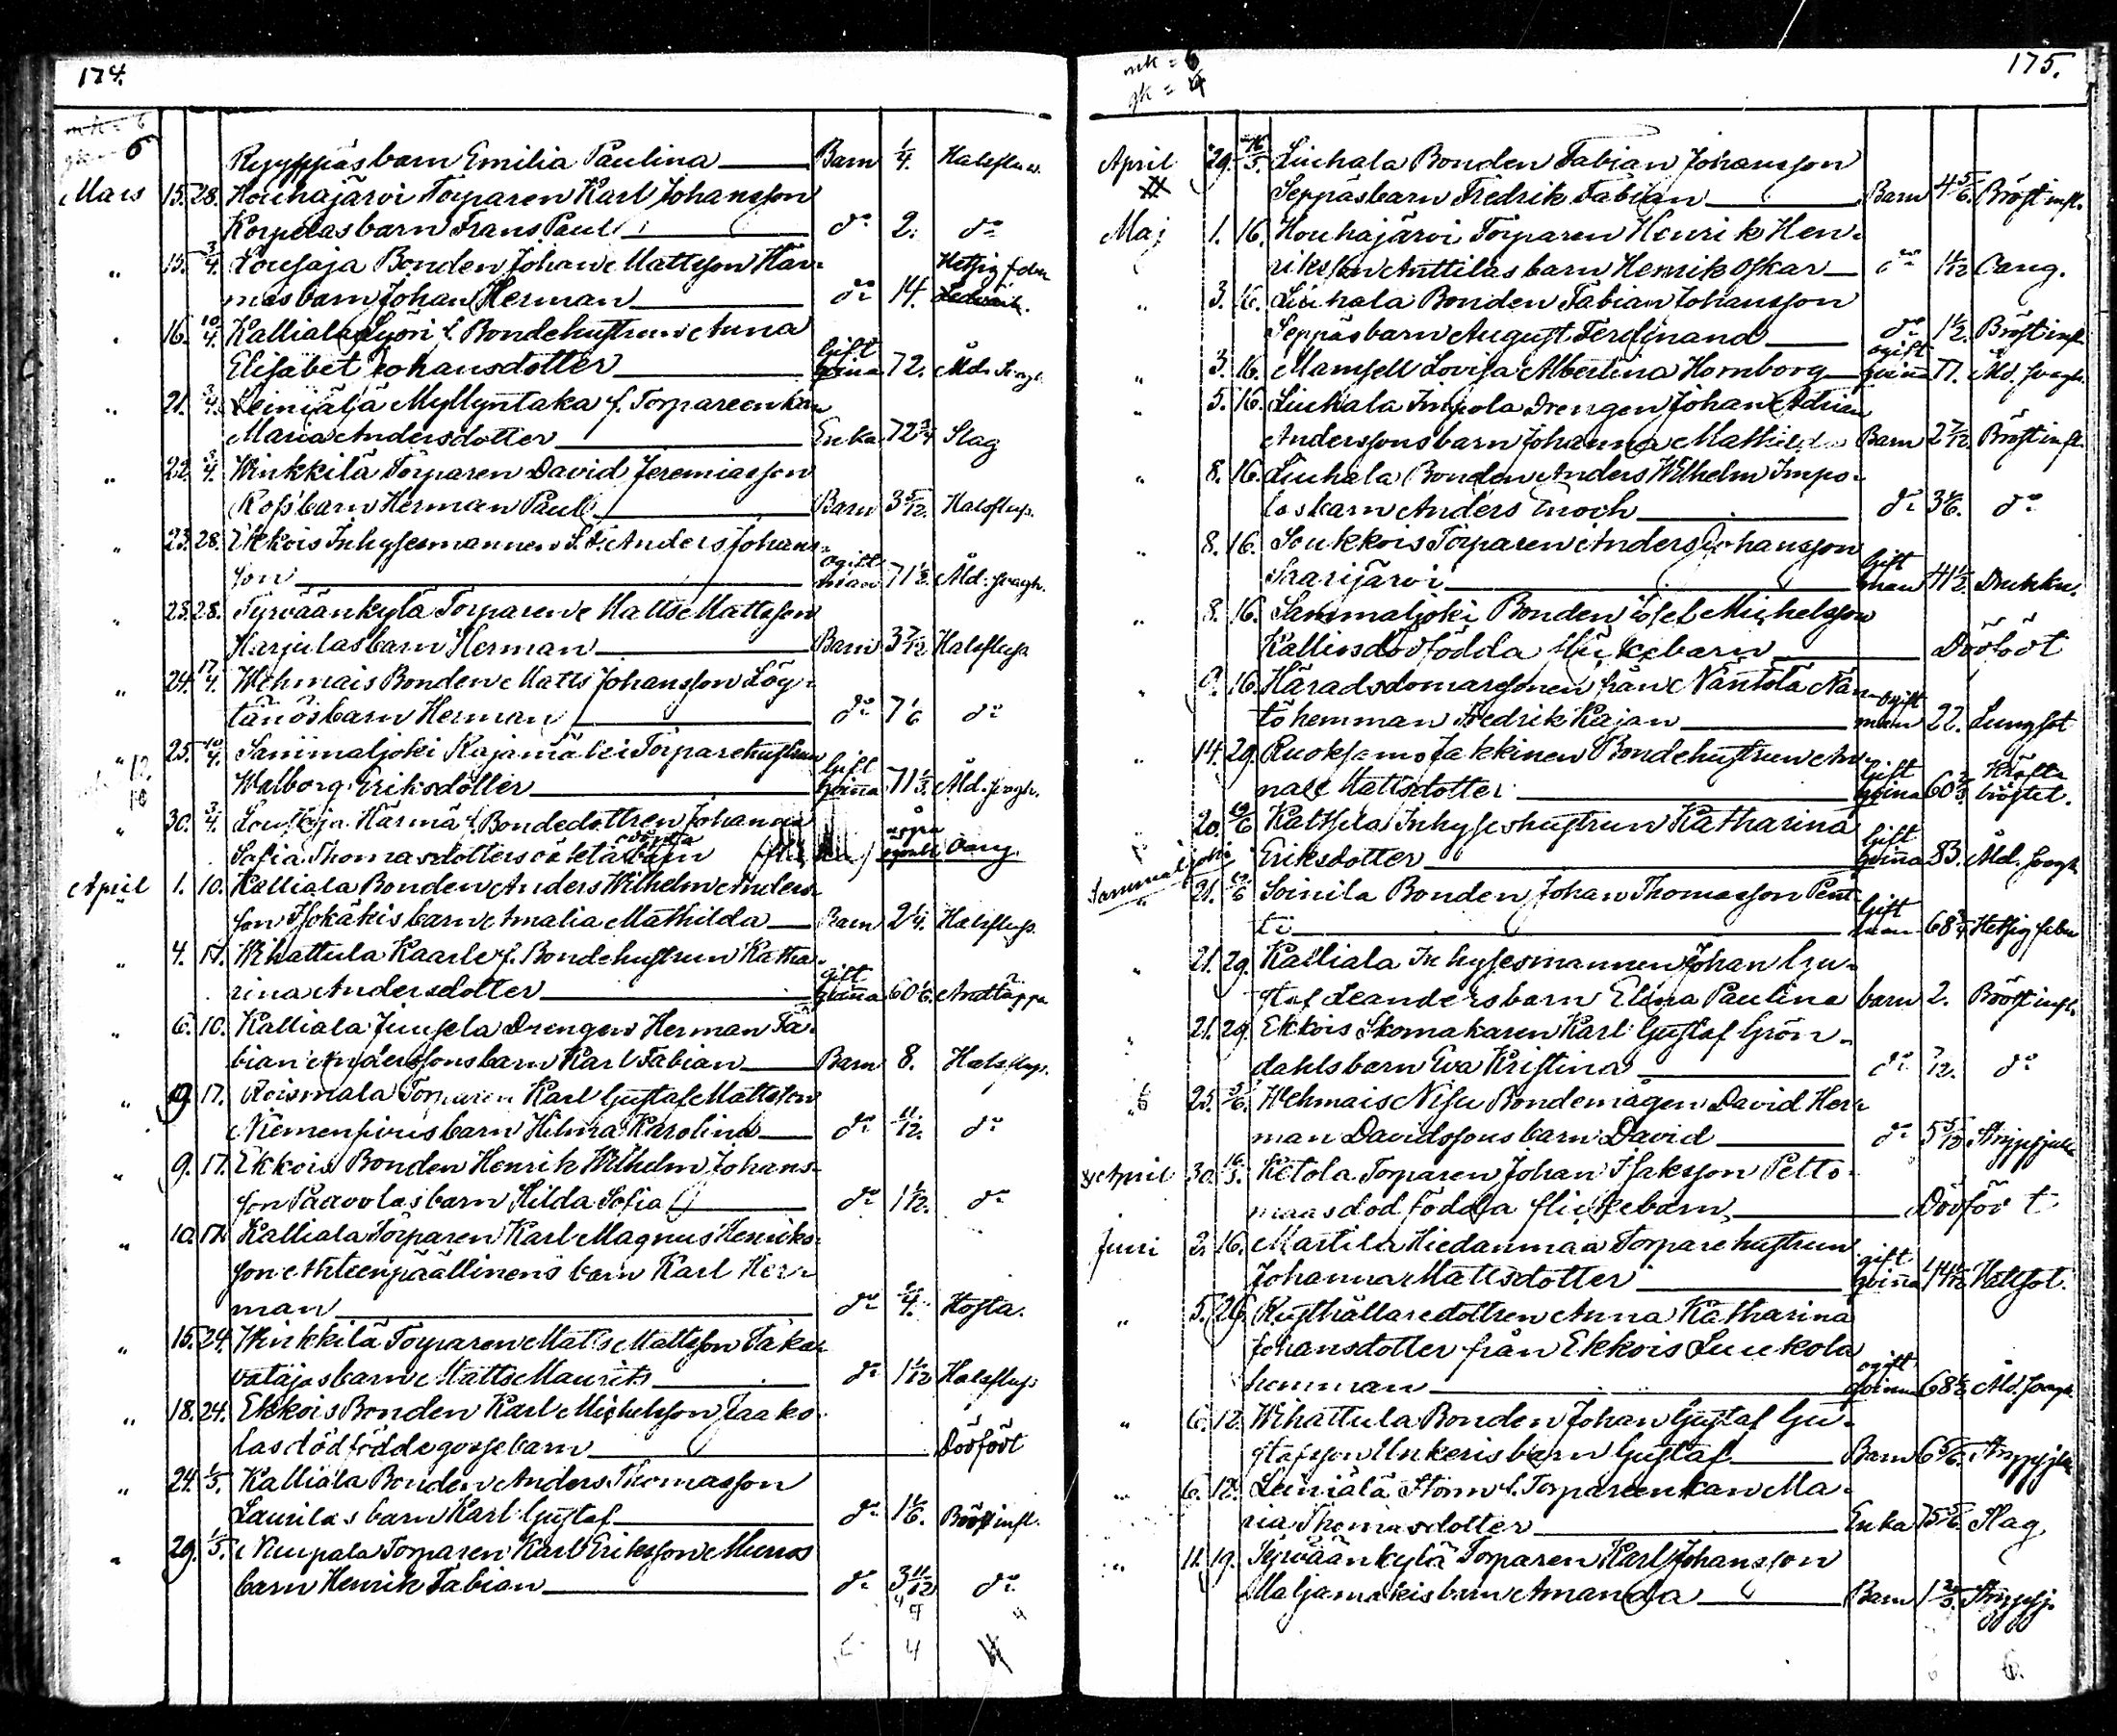 174.
6
Ryyppäs barn Emilia Paulina Barn 1/4. Halsfluss.
Mars 15. 28. Houhajärvi Torparen Karl Johansson
Korpelas barn Frans Paul do 2. do
" 15. 3/4. Lousaja Bonden Johan Mattsson Här-
mäs barn Johan Herman do 14. Hetsig feber
16. 10/4. Kalliala Lyöri f. Bondehustrun Anna
Elisabet Johansdotter Gift qvinna 72. Åld. svagh.
" 21. 3/4. Leiniälä Myllyntaka f. Torpareenkan
Maria Andersdotter Enka 72 3/4 Slag
" 22. 3/4. Kinkkilä Torparen David Jeremiasson
Ross barn Herman Paul Barn 3 5/12. Halsfluss.
" 23. 28. Ekkois Inhysesmannen S. A. Anders Johans-
son ogift man 71 1/2. Åld. svagh.
" 23. 28. Tyrväänkylä Torparen Matts Mattsson
Harjulas barn Herman Barn 3 7/12 Halsfluss
" 24. 17/4. Wehmais Bonden Matts Johansson Löy-
tänös barn Herman do 7 1/6 do
" 25. 10/4. Sammaljoki Rajamäki Torparehustrun
Walborg Eriksdotter Gift qvinna 71 1/3. Åld. svagh.
" 30. 3/4. Lousaja Härmä f. Bondedottren Johanna
Sofia Thomasdotters oäkta odöpta barn några ögonbl. Oang.
April 1. 10. Kalliala Bonden Anders Wilhelm Anders-
son Isokäkis barn Amalia Mathilda Barn 2 1/4. Halsfluss.
" 4. 17. Wihattula Kaarle f. Bondehustrun Katha-
rina Andersdotter gift qvinna 60 1/6. Andtäppa
" 6. 10. Kalliala Junsela Drengen Herman Fa-
bian Anderssons barn Karl Fabian Barn 8. Halsfluss.
" 9. 17. Roismala Torparen Karl Gustaf Mattsson
Niemenpirus barn Hilma Karolina do 11/12. do
" 9. 17. Ekkois Bonden Henrik Wilhelm Johans-
son Paavolas barn Hilda Sofia do 1 1/12. do
" 10. 17. Kalliala Torparen Karl Magnus Henriks-
son Ahteenpäällinens barn Karl Her-
man do Hosta.
" 15. 24. Kinkkilä Torparen Matts Mattsson Taka-
vatajas barn Matts Maurits do 1 1/12 Halsfluss
" 18. 24. Ekkois Bonden Karl Michelsson Jaako-
las dödfödde gossebarn Dödfödt
" 24. 1/5. Kalliala Bonden Anders Thomasson
Laurilas barn Karl Gustaf do 1 1/6. Bröstinfl.
" 29. 1/5. Nuupala Torparen Karl Eriksson Murros
barn Henrik Fabian do 3 11/12 do
4
175.
mk = 6
qk = 4
April 29. 16/5. Liuhala Bonden Fabian Johansson
Seppäs barn Fredrik Fabian Barn 4 5/6. Bröstinfl.
Maj 1. 16. Houhajärvi Torparen Henrik Hen-
riksson Anttilas barn Henrik Oskar do 1 1/12 Oang.
" 3. 16. Liuhala Bonden Fabian Johansson
Seppäs barn August Ferdinand do 1 1/2. Bröstinfl.
" 3. 16. Mamsell Lovisa Albertina Hornborg ogift qvinna 77. Åld. svagh.
" 5. 16. Liuhala Impola Drengen Johan Adrian
Anderssons barn Johanna Mathilda Barn 2 7/12. Bröstinfl.
" 8. 16. Liuhala Bonden Anders Wilhelm Impo-
las barn Anders Enoch do 3 1/6. do
" 8. 16. Soukkois Torparen Anders Johansson
Saarijärvi Gift man 41 1/2. Drunkn.
" 8. 16. Sammaljoki Bonden Josef Michelsson
Kallios dödfödda flickebarn Dödfödt
" 9. 16. Häradsdomaresonen från Näntölä Nän-
tö hemman Fredrik Kajan ogift man 22. Lungsot
" 14. 29. Ruoksamo Jakkinen Bondehustrun An-
na Mattsdotter Gift qvinna 60 2/3 Kräfta bröstet.
" 20. Kaltsila Inhyseshustrun Katharina
Eriksdotter Gift qvinna 83. Åld. svagh.
Sammaljoki
" 21. Soinila Bonden Johan Thomasson Pent-
ti Gift man 68 3/4 Hetsig feber
" 21. 29. Kalliala Inhysesmannen Johan Gu-
staf Leanders barn Elina Paulina barn 2. Bröstinfl.
" 21. 29. Ekkois Skomakaren Karl Gustaf Grön-
dahls barn Eva Kristina do 7/12. do
" 25. Wehmais Nisu Bondemågen David Her-
man Davidssons barn David do 5 5/12 Strypsjuk
April 30. 16/5. Ketola Torparen Johan Isaksson Pelto-
maas dödfödda flickebarn Dödfödt
Juni 2. 16. Martila Hiedanmaa Torparehustrun
Johanna Mattsdotter gift qvinna Vattsot.
" 5. 26. Rusthållaredottren Anna Katharina
Johansdotter från Ekkois Luukola
hemman ogift qvinna 68 1/2. Åld. svagh.
" 6. 12. Wihattula Bonden Johan Gustaf Gu-
stafsson Unkeris barn Gustaf Barn 6 5/6. Strypsjuk
" 6. 12. Leiniälä Storm f. Torpareenkan Ma-
ria Thomasdotter Enka 75 5/6. Slag
" 11. 19. Tyrväänkylä Torparen Karl Johansson
Maljamäkis barn Amanda Barn 1 2/3. Strypsj.
6.